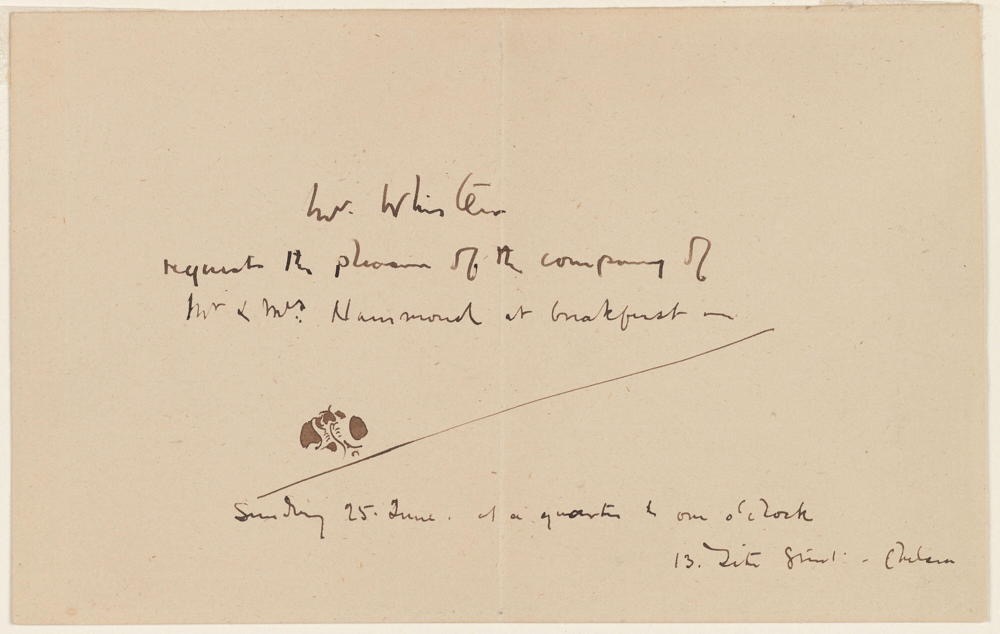 Mr. Whistler
requests the pleasure of the company of
Mr & Mrs. Hammond at breakfast on
Sunday 25. June. at a quarter to one o'clock
13. Tite Street. - Chelsea